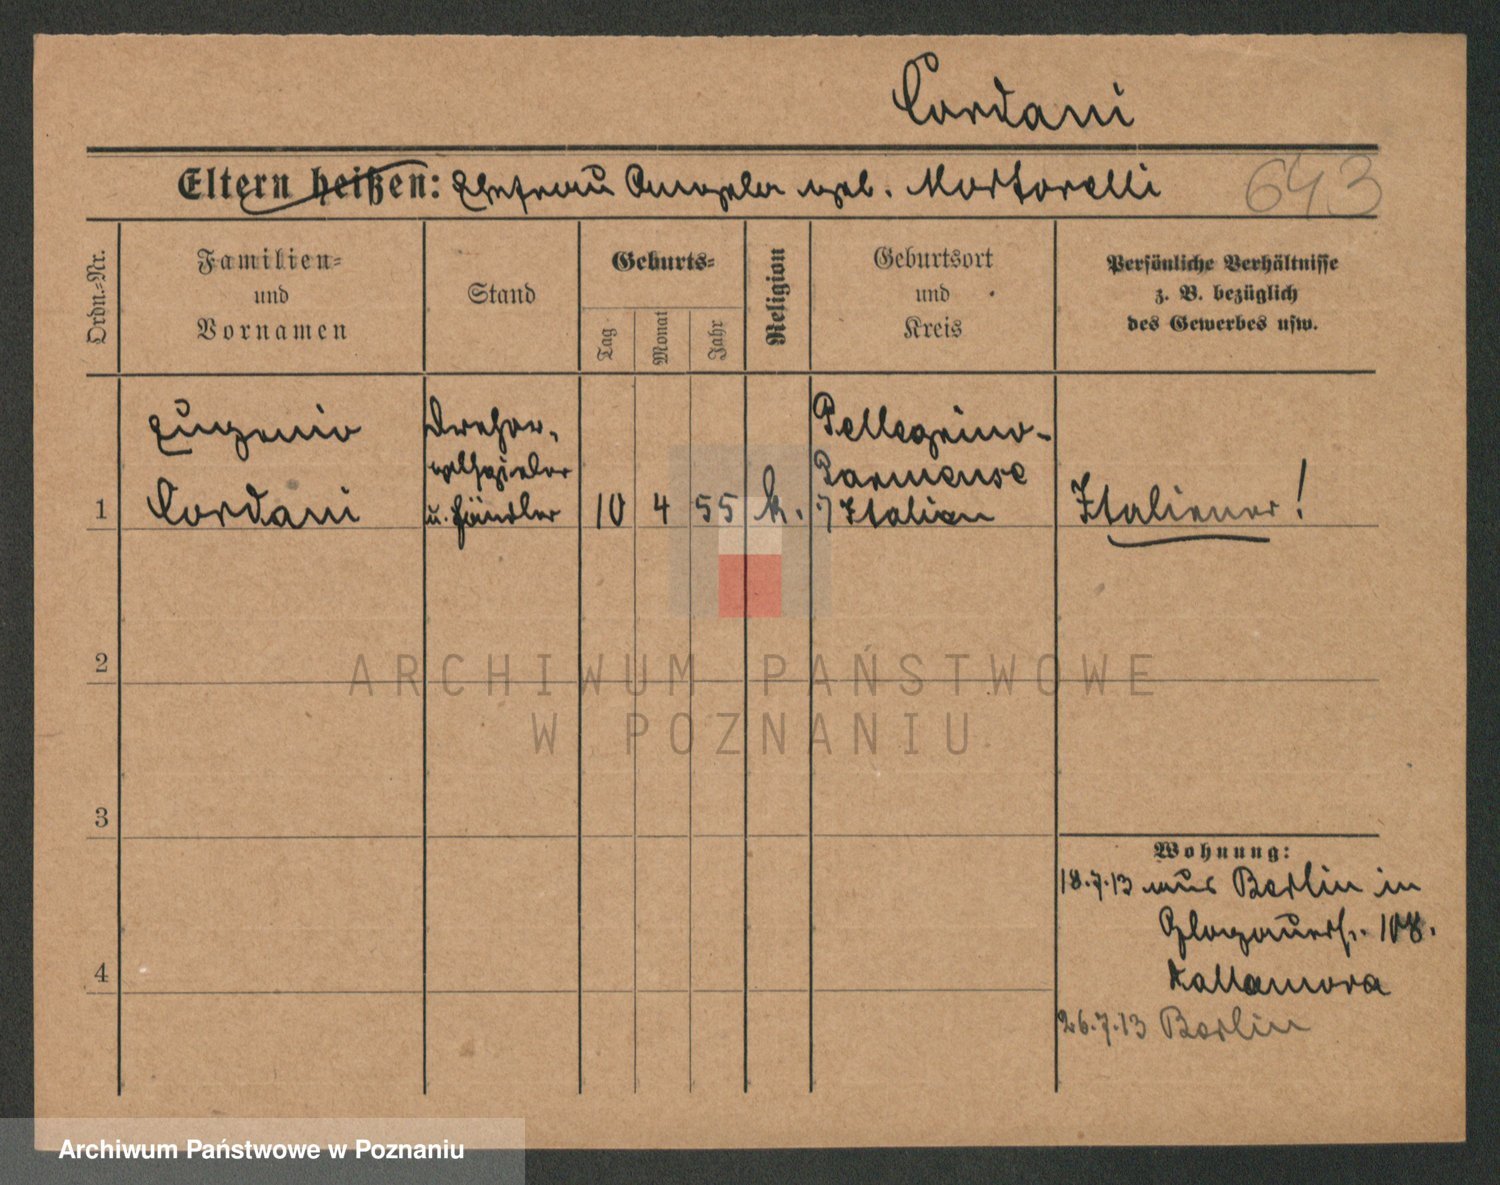 Cordani
Eltern heißen: Ehefrau Angela geb. Martorelli
643
Ordn.-Nr.
Familien-
und
Vornamen
Stand
Geburts-
Tag
Monat
Jahr
Religion
Geburtsort
und
Kreis
Persönliche Verhältnisse
z. B. bezüglich
des Gewerbes usw.
1
Eugenio
Cordani
Drehor-
gelspieler
u. Händler
10 4 55 k.
Pellegrino-
Parmense
Italien
Italiener!
2
3
4
Wohnung:
18.7.13 aus Berlin in
Glogauerstr. 108.
26.7.13 Berlin
ARCHIWUM PAŃSTWOWE
W POZNANIU
Archiwum Państwowe w Poznaniu